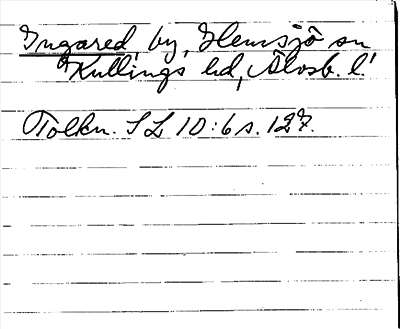 Ingared, by, Hemsjö sn
Kullings hd, Älvsb. l.
Tolkn. SL 10:6 s. 127.